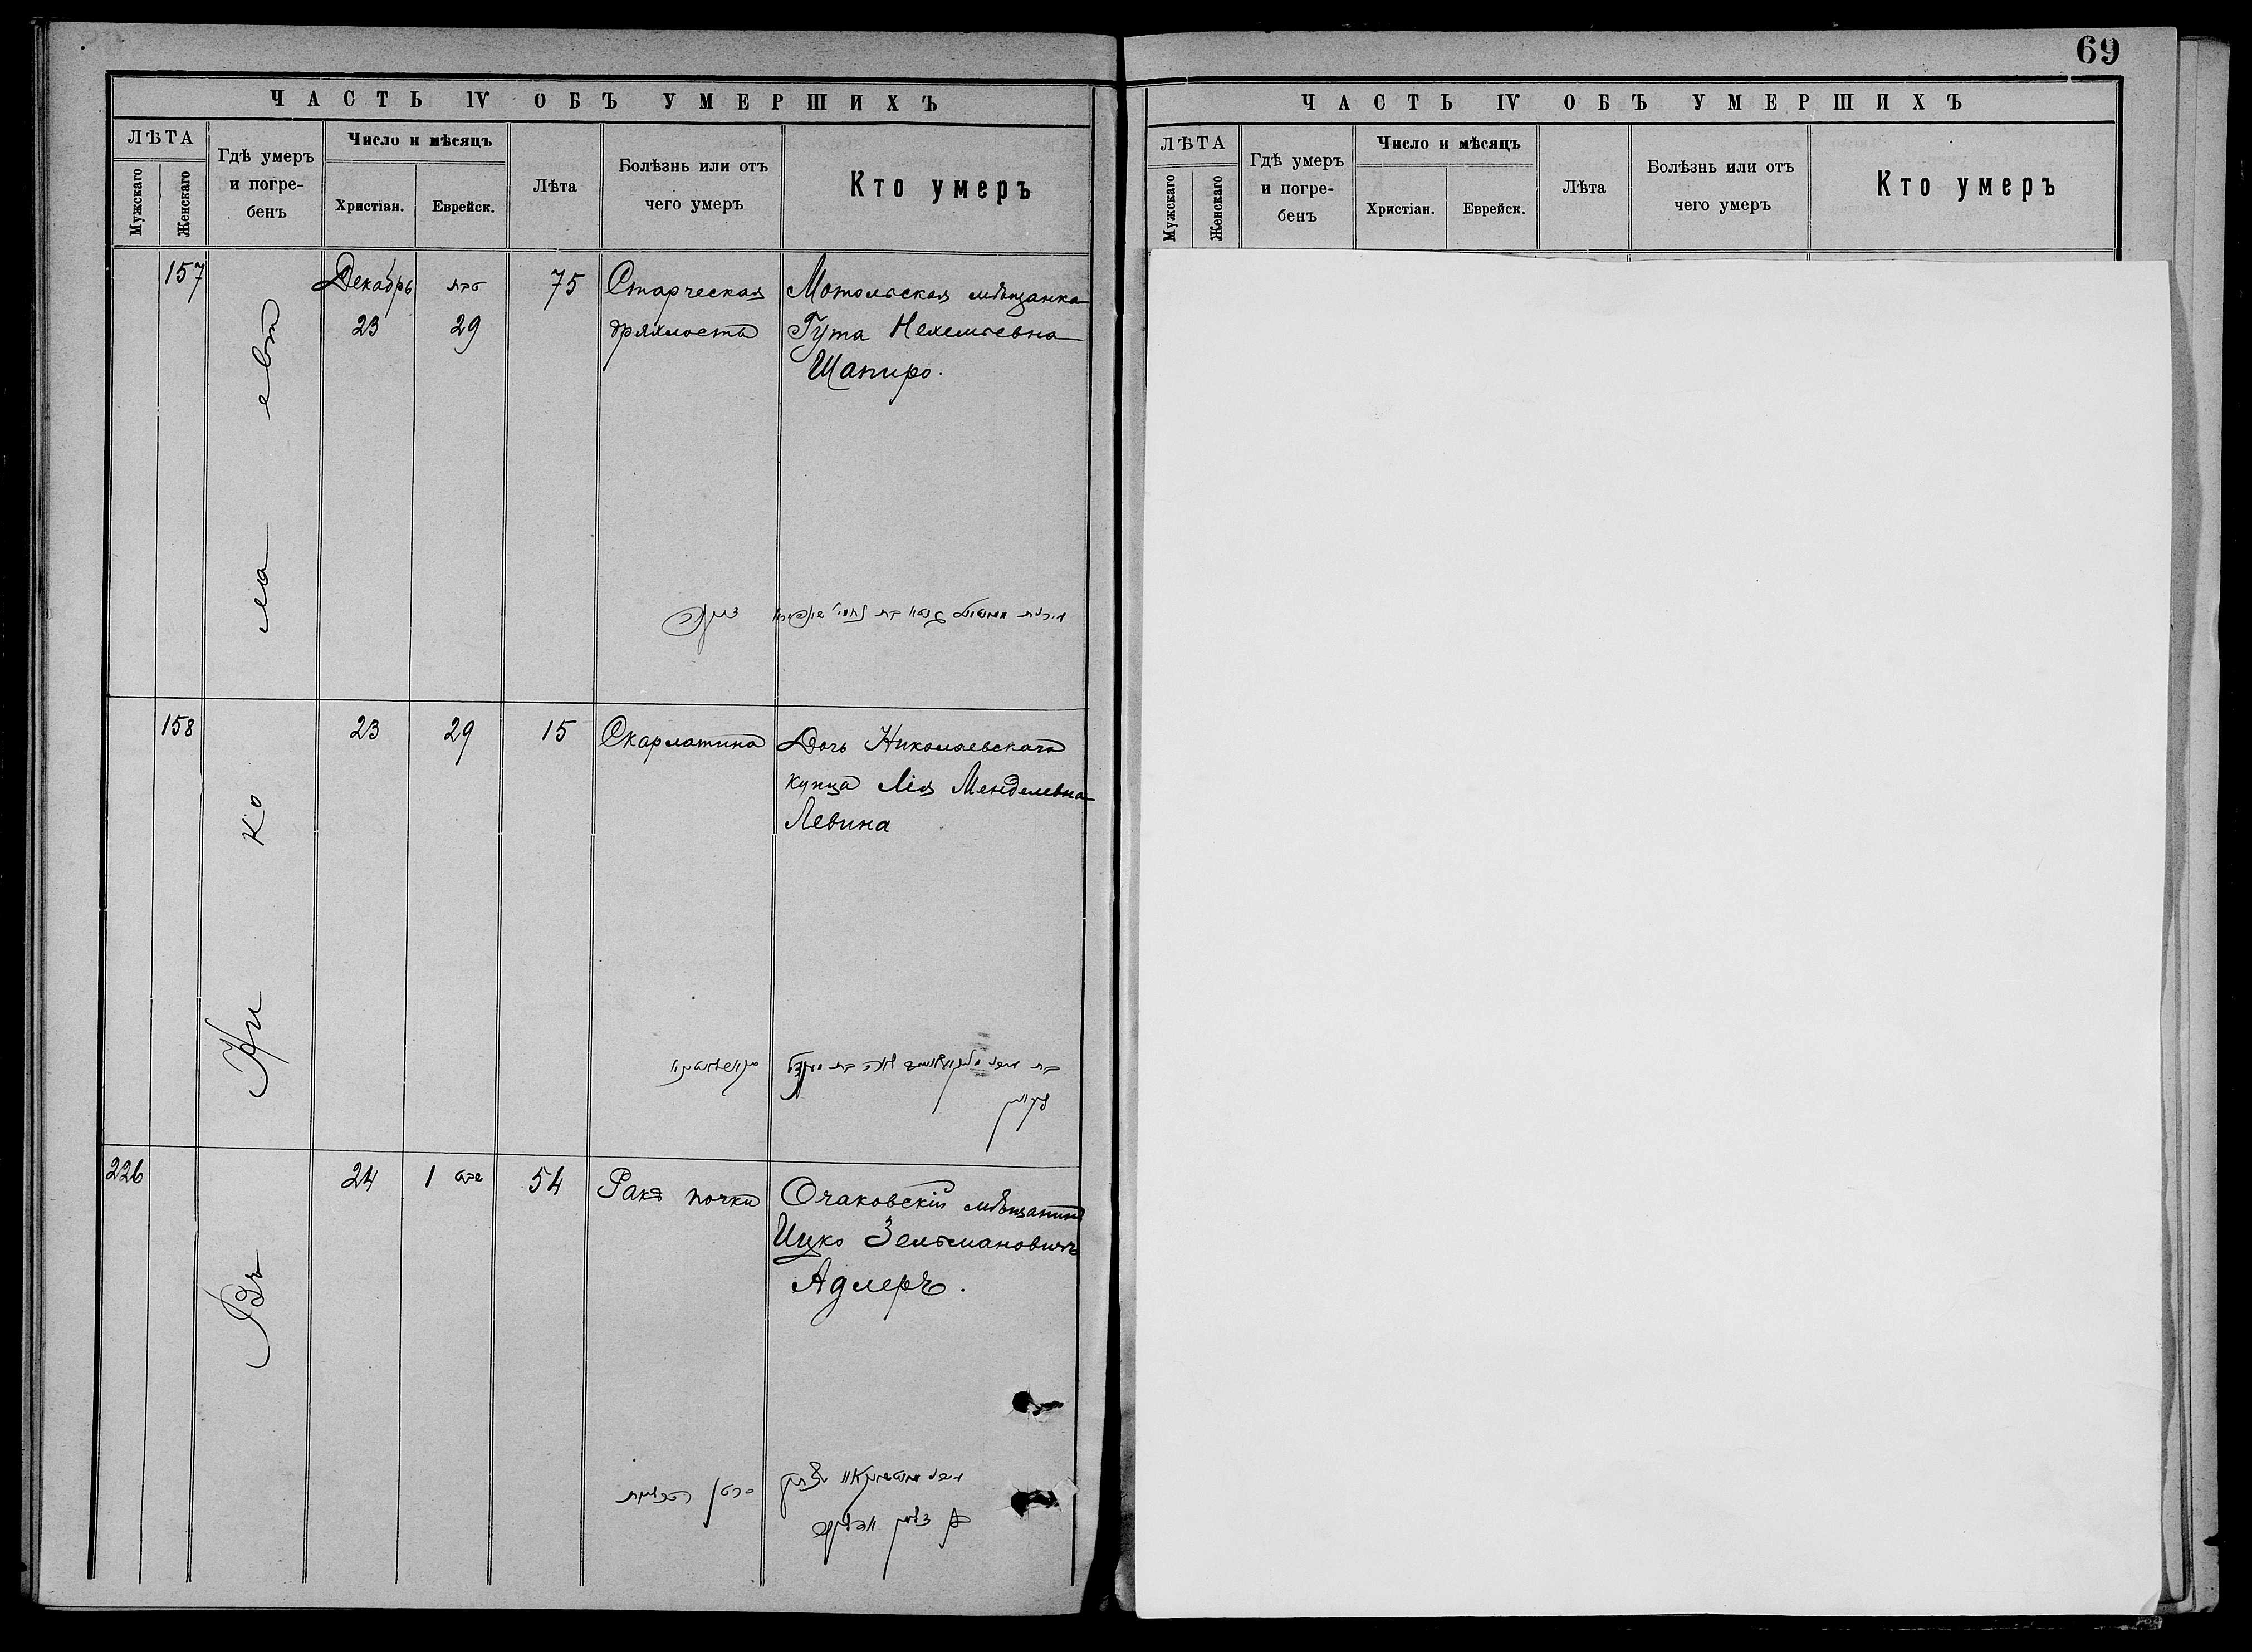 69
ЧАСТЬ IV ОБЪ УМЕРШИХЪ
ЛѢТА
Мужскаго
Женскаго
Гдѣ умеръ
и погре-
бенъ
Число и мѣсяцъ
Христіан.
Еврейск.
Лѣта
Болѣзнь или отъ
чего умеръ
Кто умеръ
157
Декабрь
23
29
75
Старческая
дряхлость
Мотольская мѣщанка
Гута Нехемьевна
Шапиро.
158
23
29
15
Скарлатина
Дочь Николаевскаго
купца Лія Менделевна
Левина
226
24
1
54
Ракъ почки
Очаковскій мѣщанинъ
Ицко Зельмановичъ
Адлеръ.
Въ Николаевѣ
ЧАСТЬ IV ОБЪ УМЕРШИХЪ
ЛѢТА
Мужскаго
Женскаго
Гдѣ умеръ
и погре-
бенъ
Число и мѣсяцъ
Христіан.
Еврейск.
Лѣта
Болѣзнь или отъ
чего умеръ
Кто умеръ